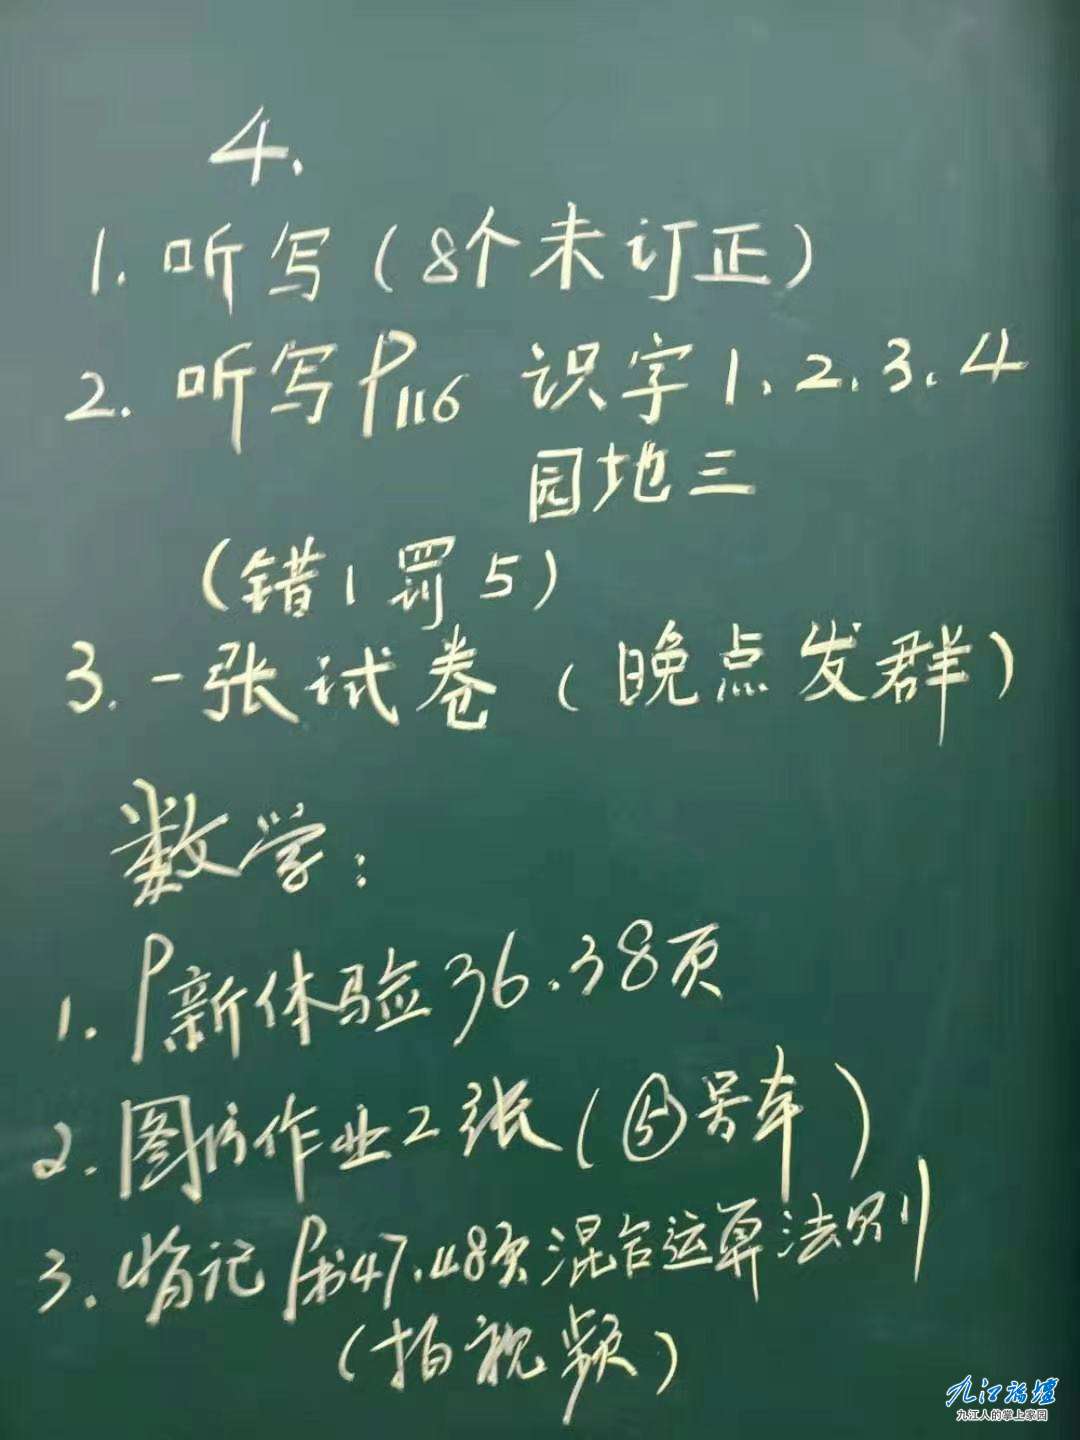 4.
1. 听写(8个未订正)
2. 听写P116 识字1、2、3、4
园地三
(错1罚5)
3. 一张试卷(晚点发群)
数学:
1. P新体验36.38页
2. 作业2张(⑤号本)
3. 背记P书47.48页混合运算法则
(拍视频)
九江论坛
九江人的掌上家园